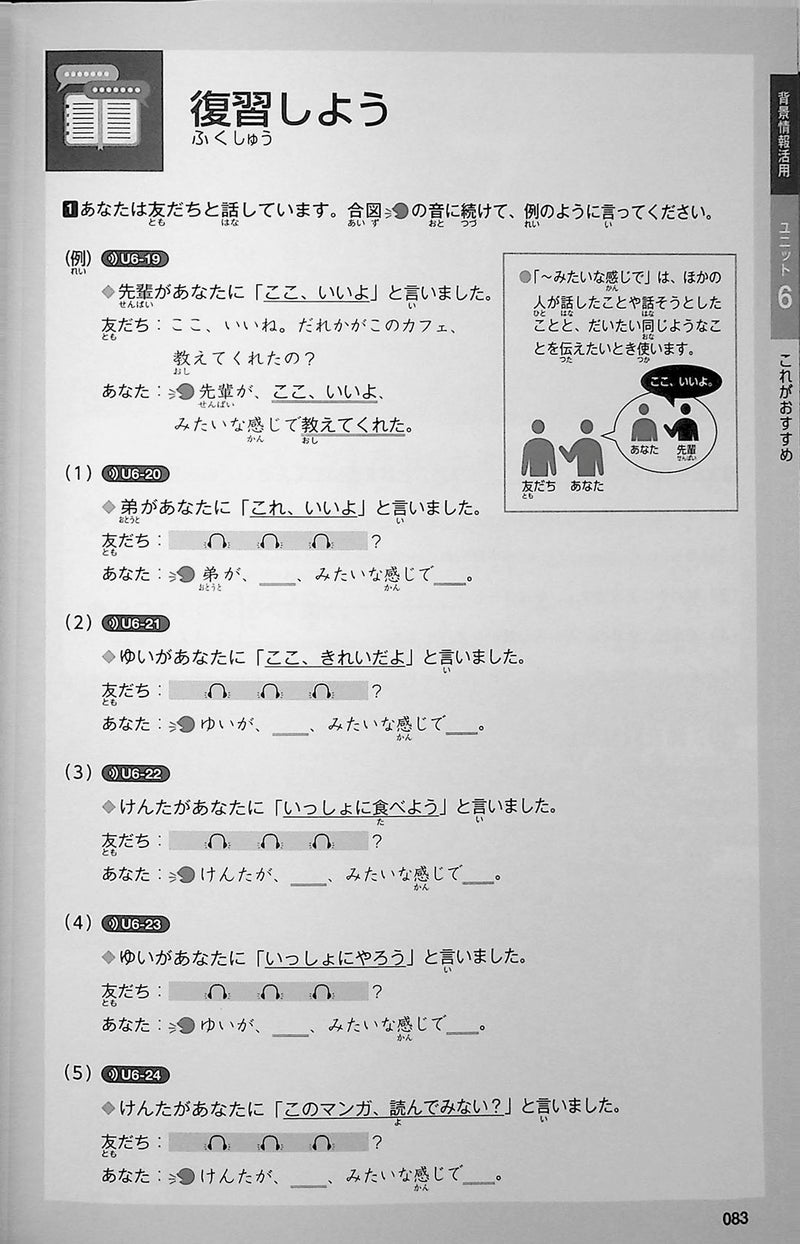 復習しよう
ふくしゅう
1 あなたは友だちと話しています。合図の音に続けて、例のように言ってください。
とも はな あいず おと つづ れい い
(例) U6-19
れい
◆先輩があなたに「ここ、いいよ」と言いました。
せんぱい い
友だち：ここ、いいね。だれかがこのカフェ、
とも
教えてくれたの？
おし
あなた：先輩が、ここ、いいよ、
せんぱい
みたいな感じで教えてくれた。
かん おし
●「～みたいな感じで」は、ほかの
かん
人が話したことや話そうとした
ひと はな はな
ことと、だいたい同じようなこ
おな
とを伝えたいとき使います。
つた つか
ここ、いいよ。
あなた 先輩
せんぱい
友だち あなた
とも
(1) U6-20
◆弟があなたに「これ、いいよ」と言いました。
おとうと い
友だち： ？
とも
あなた：弟が、＿＿、みたいな感じで＿＿。
おとうと かん
(2) U6-21
◆ゆいがあなたに「ここ、きれいだよ」と言いました。
い
友だち： ？
とも
あなた：ゆいが、＿＿、みたいな感じで＿＿。
かん
(3) U6-22
◆けんたがあなたに「いっしょに食べよう」と言いました。
た い
友だち： ？
とも
あなた：けんたが、＿＿、みたいな感じで＿＿。
かん
(4) U6-23
◆ゆいがあなたに「いっしょにやろう」と言いました。
い
友だち： ？
とも
あなた：ゆいが、＿＿、みたいな感じで＿＿。
かん
(5) U6-24
◆けんたがあなたに「このマンガ、読んでみない？」と言いました。
よ い
友だち： ？
とも
あなた：けんたが、＿＿、みたいな感じで＿＿。
かん
背景情報活用
ユニット 6
これがおすすめ
083